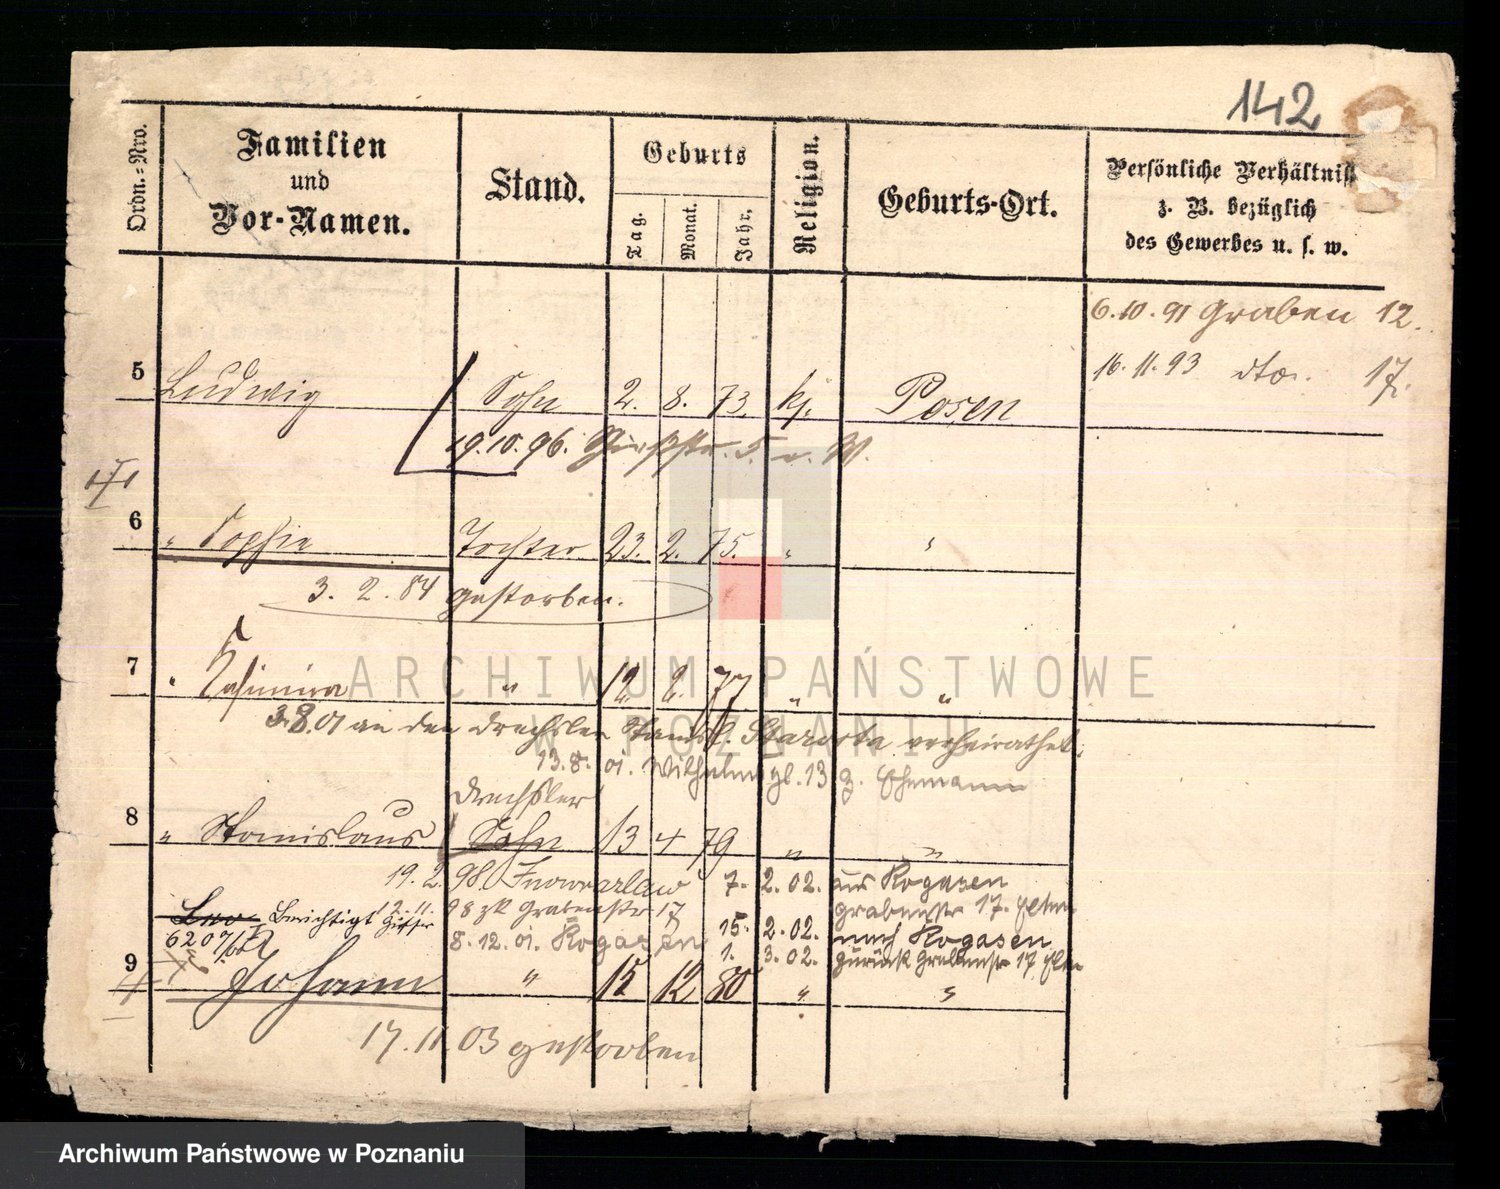 142
Ordn.-Nro.
Familien
und
Vor-Namen.
Stand.
Geburts
Tag.
Monat.
Jahr.
Religion.
Geburts-Ort.
Persönliche Verhältniß
z. B. bezüglich
des Gewerbes u. s. w.
6.10.91 Graben 12.
16.11.93 dto. 17.
5 Ludwig Sohn 2. 8. 73. kj. Posen
19.10.96. 5. W.
6 " Sophie Tochter 23. 2. 75. " "
3. 2. 84 gestorben.
7 " Kasimira " 12. 2. 77 " "
3.8.01 an den Drechsler Stanisl. Starosta verheirathet.
13.8.01. Wilhelmspl. 13 z. Ehemann
Drechsler
8 " Stanislaus Sohn 13 4 79 " "
19.2.98. Inowrazlaw 7. 2. 02. aus Rogasen
Berichtigt 12.11.98 zk Grabenstr 17 Grabenstr 17. Eltern
6207/02
8.12.01. Rogasen 15. 2. 02. nach Rogasen
1. 3. 02. zurück Grabenstr 17 Eltern
9 Johann " 15 12 80 " "
17.11.03 gestorben
ARCHIWUM PAŃSTWOWE
W POZNANIU
Archiwum Państwowe w Poznaniu